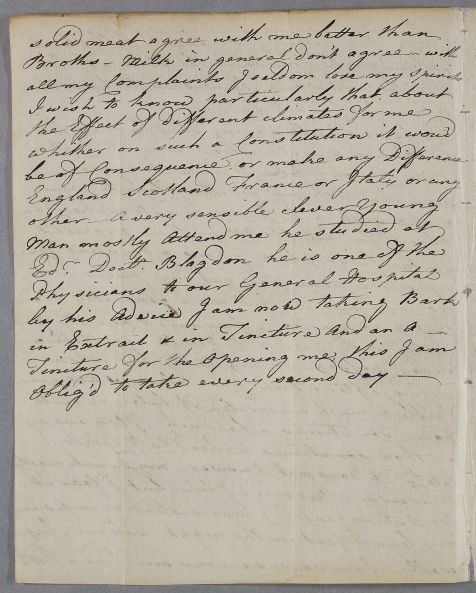 solid meat agree with me better than
Broths - Milk in general don't agree - with
all my Complaints I seldom lose my spirits
I wish to know particularly that about
the Effect of different climates for me
whether on such a Constitution it would
be of Consequence or make any Difference
England Scotland France or Italy or any
other - a very sensible clever Young
Man mostly Attend me he studied at
Edr. Doctr. Blagdon he is one of the
Physicians to our General Hospital
by his Advice I am now taking Bark
in Extrait & in Tincture And an A -
Tincture for the Opening me, this I am
Oblig'd to take every second day -